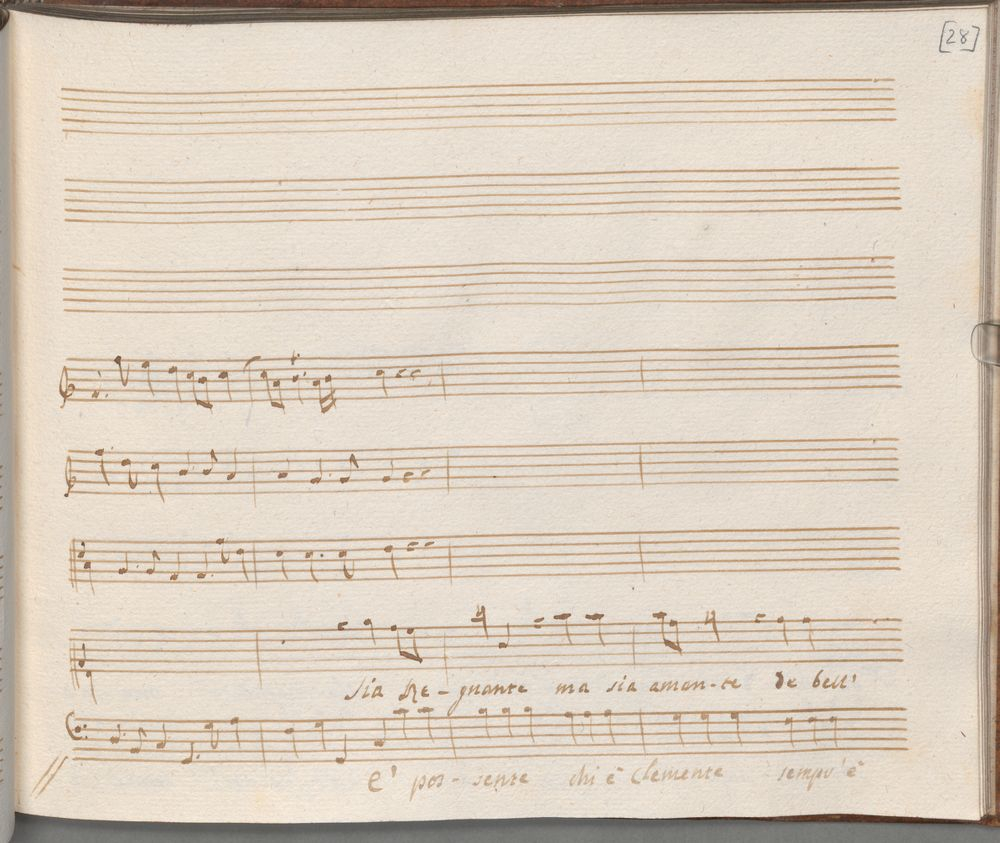 [28]
sia Re- gnante ma sia aman-te de bell'
e' pos- sente chi è Clemente sempr'è